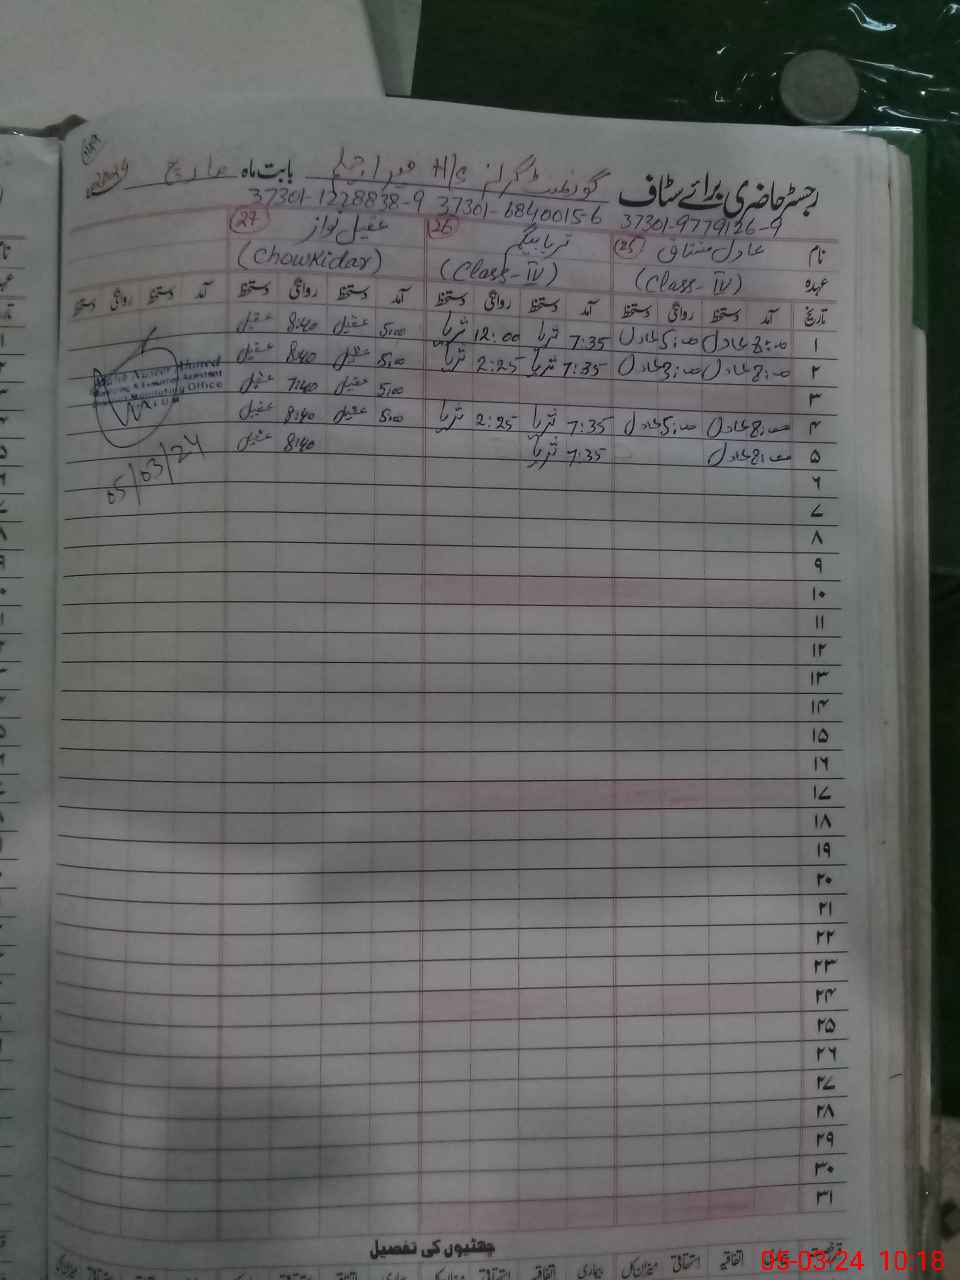 رجسٹر حاضری برائے سٹاف گورنمنٹ گرلز H/S بابت ماہ مارچ 2024
37301-9779126-9 37301-6840015-6 37301-1228838-9
نام (25) عادل مشتاق (26) ثریا بیگم (27) عقیل نواز
عہدہ (Class-IV) (Class-IV) (Chowkidar)
تاریخ آمد دستخط روانگی دستخط آمد دستخط روانگی دستخط آمد دستخط روانگی دستخط آمد دستخط روانگی دستخط
۱ عادل عادل 7:35 ثریا 12:00 ثریا 5:00 عقیل 8:40 عقیل
۲ عادل عادل 7:35 ثریا 2:25 ثریا 5:00 عقیل 8:40 عقیل
۳ 5:00 عقیل 7:40 عقیل
۴ عادل عادل 7:35 ثریا 2:25 ثریا 5:00 عقیل 8:40 عقیل
۵ عادل 7:35 ثریا 8:40 عقیل
Naseer Ahmed
Monitoring & Evaluation Assistant
Monitoring Office
05/03/24
۶
۷
۸
۹
۱۰
۱۱
۱۲
۱۳
۱۴
۱۵
۱۶
۱۷
۱۸
۱۹
۲۰
۲۱
۲۲
۲۳
۲۴
۲۵
۲۶
۲۷
۲۸
۲۹
۳۰
۳۱
چھٹیوں کی تفصیل
اتفاقیہ استحقاقی میزان کل بیماری اتفاقیہ استحقاقی میزان کل بیماری اتفاقیہ استحقاقی میزان کل
05-03-24 10:18